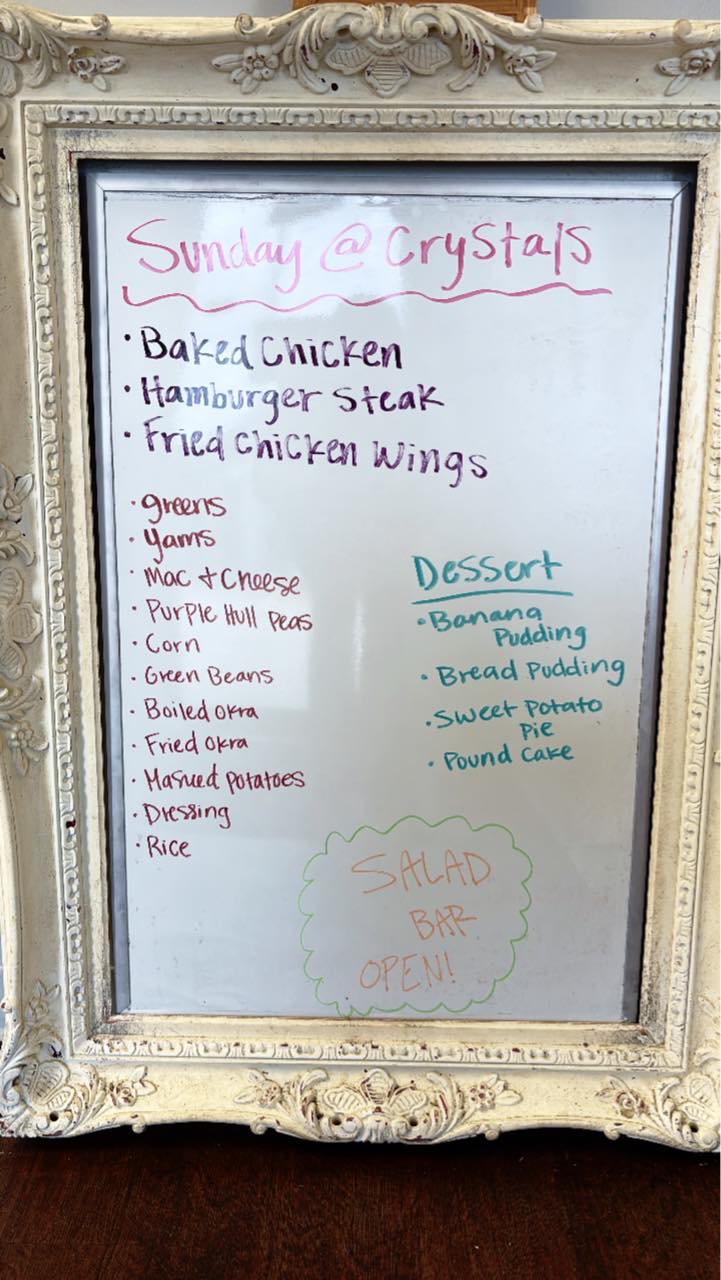 Sunday @ Crystals
• Baked Chicken
• Hamburger Steak
• Fried Chicken Wings
• greens
• yams
• Mac + Cheese
• Purple Hull Peas
• Corn
• Green Beans
• Boiled Okra
• Fried Okra
• Mashed Potatoes
• Dressing
• Rice
Dessert
• Banana
Pudding
• Bread Pudding
• Sweet Potato
Pie
• Pound Cake
SALAD
BAR
OPEN!